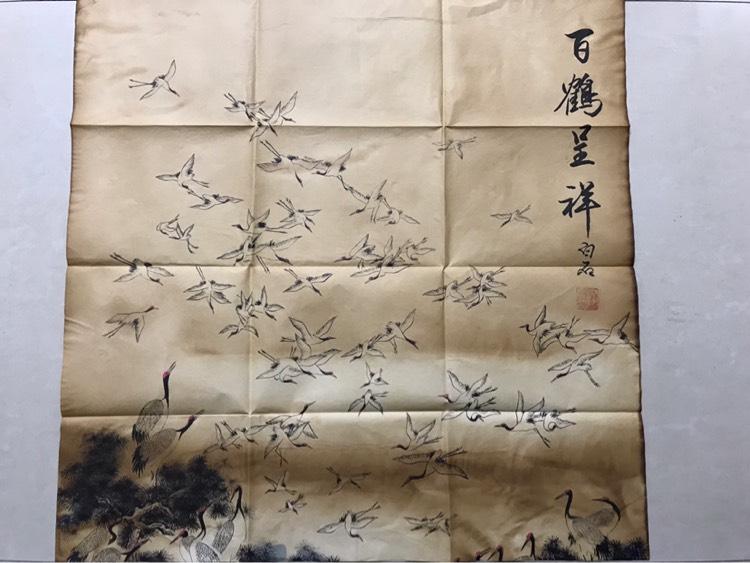 百鶴呈祥
白石